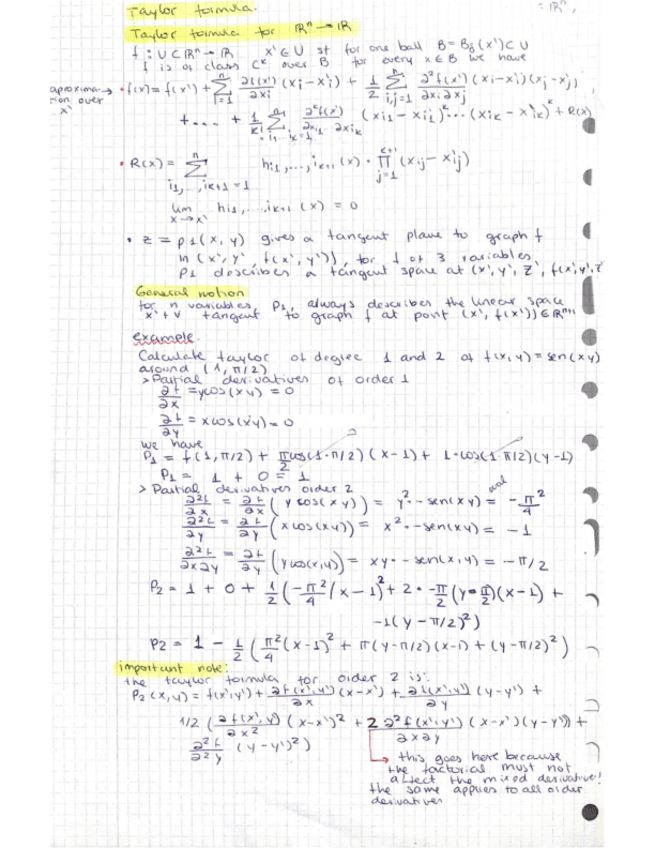 Taylor formula.
= ℝⁿ,
Taylor formula for ℝⁿ → ℝ
f : U ⊂ ℝⁿ → ℝ x' ∈ U st for one ball B = Bδ(x') ⊂ U
f is of class Cᵏ over B for every x ∈ B we have
aproxima- → • f(x) = f(x') + Σⁿᵢ₌₁ ∂f(x')/∂xi (xi - xi') + 1/2 Σⁿᵢ,ⱼ₌₁ ∂²f(x')/∂xi ∂xj (xi - xi')(xj - xj')
tion over
x'
+ ... + 1/k! Σⁿ i₁...ik=1 ∂ᵏf(x')/∂xi1 ∂xik (xi1 - xi1')ᵏ ... (xik - x'ik)ᵏ + R(x)
• R(x) = Σⁿ i1,...,ik+1 = 1 hi1,...,ik+1 (x) · ∏ᵏ⁺¹ j=1 (xij - x'ij)
lim x→x' hi1,...,ik+1 (x) = 0
• z = p1(x, y) gives a tangent plane to graph f
in (x', y', f(x', y')), for f of 3 variables,
P1 describes a tangent space at (x', y', z', f(x',y',z'
General notion
for n variables, P1, always describes the linear space
x' + V tangent to graph f at point (x', f(x')) ∈ ℝⁿ⁺¹
example.
Calculate taylor of degree 1 and 2 of f(x,y) = sen(xy)
around (1, π/2)
> Partial derivatives of order 1
∂f/∂x = ycos(xy) = 0
∂f/∂y = xcos(xy) = 0
we have
P1 = f(1, π/2) + π/2 cos(1·π/2)(x-1) + 1·cos(1·π/2)(y-1)
P1 = 1 + 0 = 1
> Partial derivatives order 2
∂²f/∂x = ∂f/∂x (y cos(xy)) = y² · -sen(xy) = -π²/4
∂²f/∂y = ∂f/∂y (xcos(xy)) = x² · -sen(xy) = -1
∂²f/∂x∂y = ∂f/∂y (ycos(x,y)) = xy · -sen(x,y) = -π/2
P2 = 1 + 0 + 1/2 (-π²/4 (x-1)² + 2 · -π/2 (y-π/2)(x-1) +
-1(y - π/2)²)
P2 = 1 - 1/2 (π²/4 (x-1)² + π(y-π/2)(x-1) + (y-π/2)²)
important note:
the taylor formula for order 2 is:
P2(x,y) = f(x',y') + ∂f(x',y')/∂x (x-x') + ∂f(x',y')/∂y (y-y') +
1/2 (∂f(x',y)/∂x² (x-x')² + 2 ∂²f(x',y')/∂x∂y (x-x')(y-y')) +
∂²f/∂²y (y-y')²)
→ this goes here because
the factorial must not
affect the mixed derivative!
the same applies to all order
derivatives